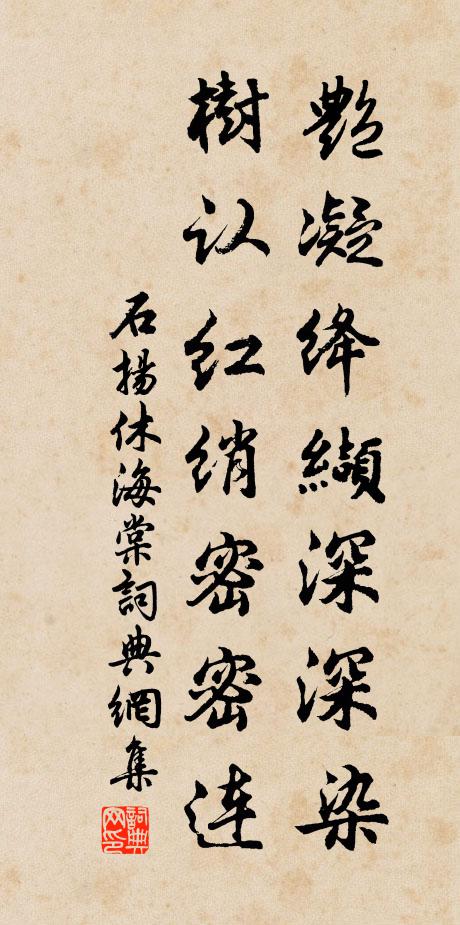 艷凝绛纈深深染
樹认红绡密密连
石揚休海棠詞典網集
詞典网印